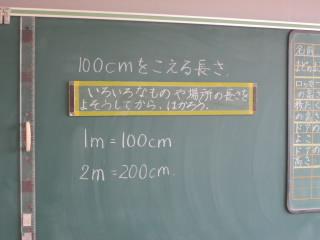 100cmをこえる長さ.
いろいろなものや場所の長さを
よそうしてから、はかろう。
1m=100cm
2m=200cm.
名前
ドアの
高さ